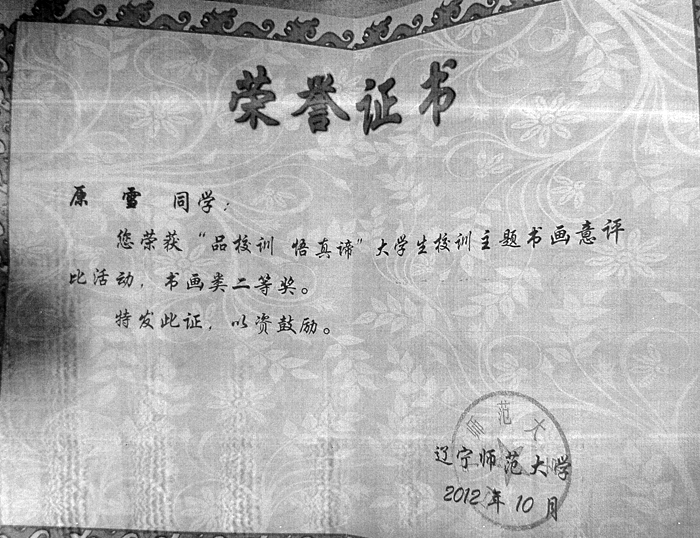 荣誉证书
原 雪 同学：
您荣获“品校训 悟真谛”大学生校训主题书画意评
比活动，书画类二等奖。
特发此证，以资鼓励。
师范大
辽宁师范大学
2012年10月